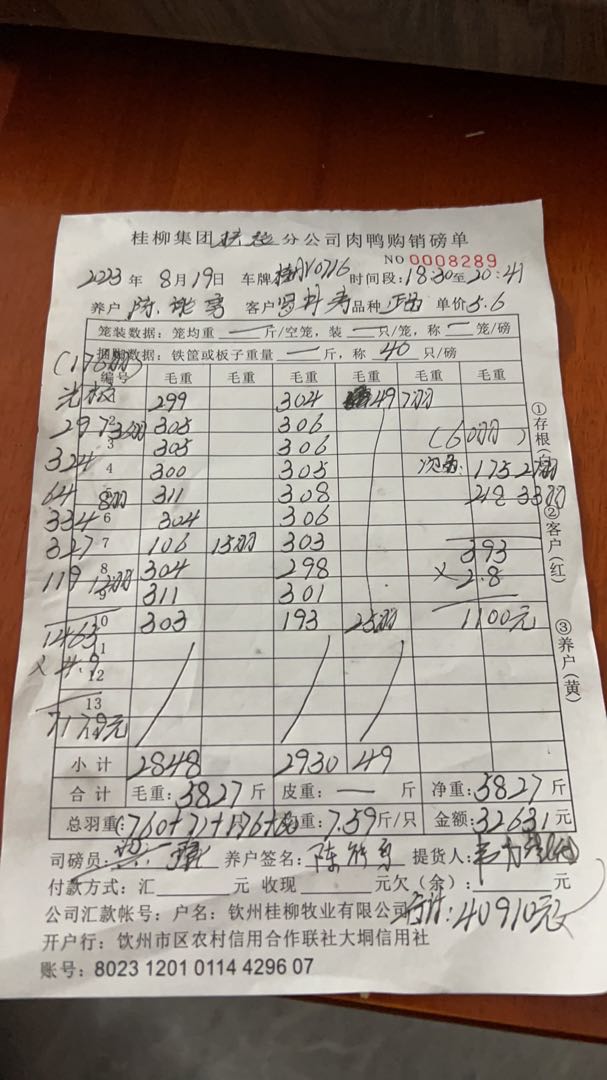 桂柳集团 分公司肉鸭购销磅单
NO 0008289
2023 年 8 月 19 日 车牌 桂AV0716 时间段: 18:30 至 20:41
养户 陈 客户 品种 单价 5.6
笼装数据: 笼均重 一 斤/空笼, 装 一 只/笼, 称 一 笼/磅
捆脚数据: 铁筐或板子重量 一 斤, 称 40 只/磅
(176羽)
编号 毛重 毛重 毛重 毛重 毛重 毛重
光板 299 304 49 7羽
297 2 305 306
324 3 305 306 (60羽)
4 300 305 175 27羽
64 8羽 311 308 218 33羽
334 6 304 306
327 7 106 15羽 303 393
119 8 304 298 × 2.8
9 311 301
1465 10 303 193 25羽 1100元
× 4.9
12
13
7179元
14
小计 2848 2930 49
合计 毛重: 5827 斤 皮重: 一 斤 净重: 5827 斤
总羽重: (760+7)+176+60 均重: 7.59 斤/只 金额: 32631 元
司磅员: 养户签名: 陈 提货人:
付款方式: 汇 元 收现 元欠(余): 元
公司汇款帐号: 户名: 钦州桂柳牧业有限公司 合计: 40910元
开户行: 钦州市区农村信用合作联社大垌信用社
账号: 8023 1201 0114 4296 07
①存根(白)
②客户(红)
③养户(黄)